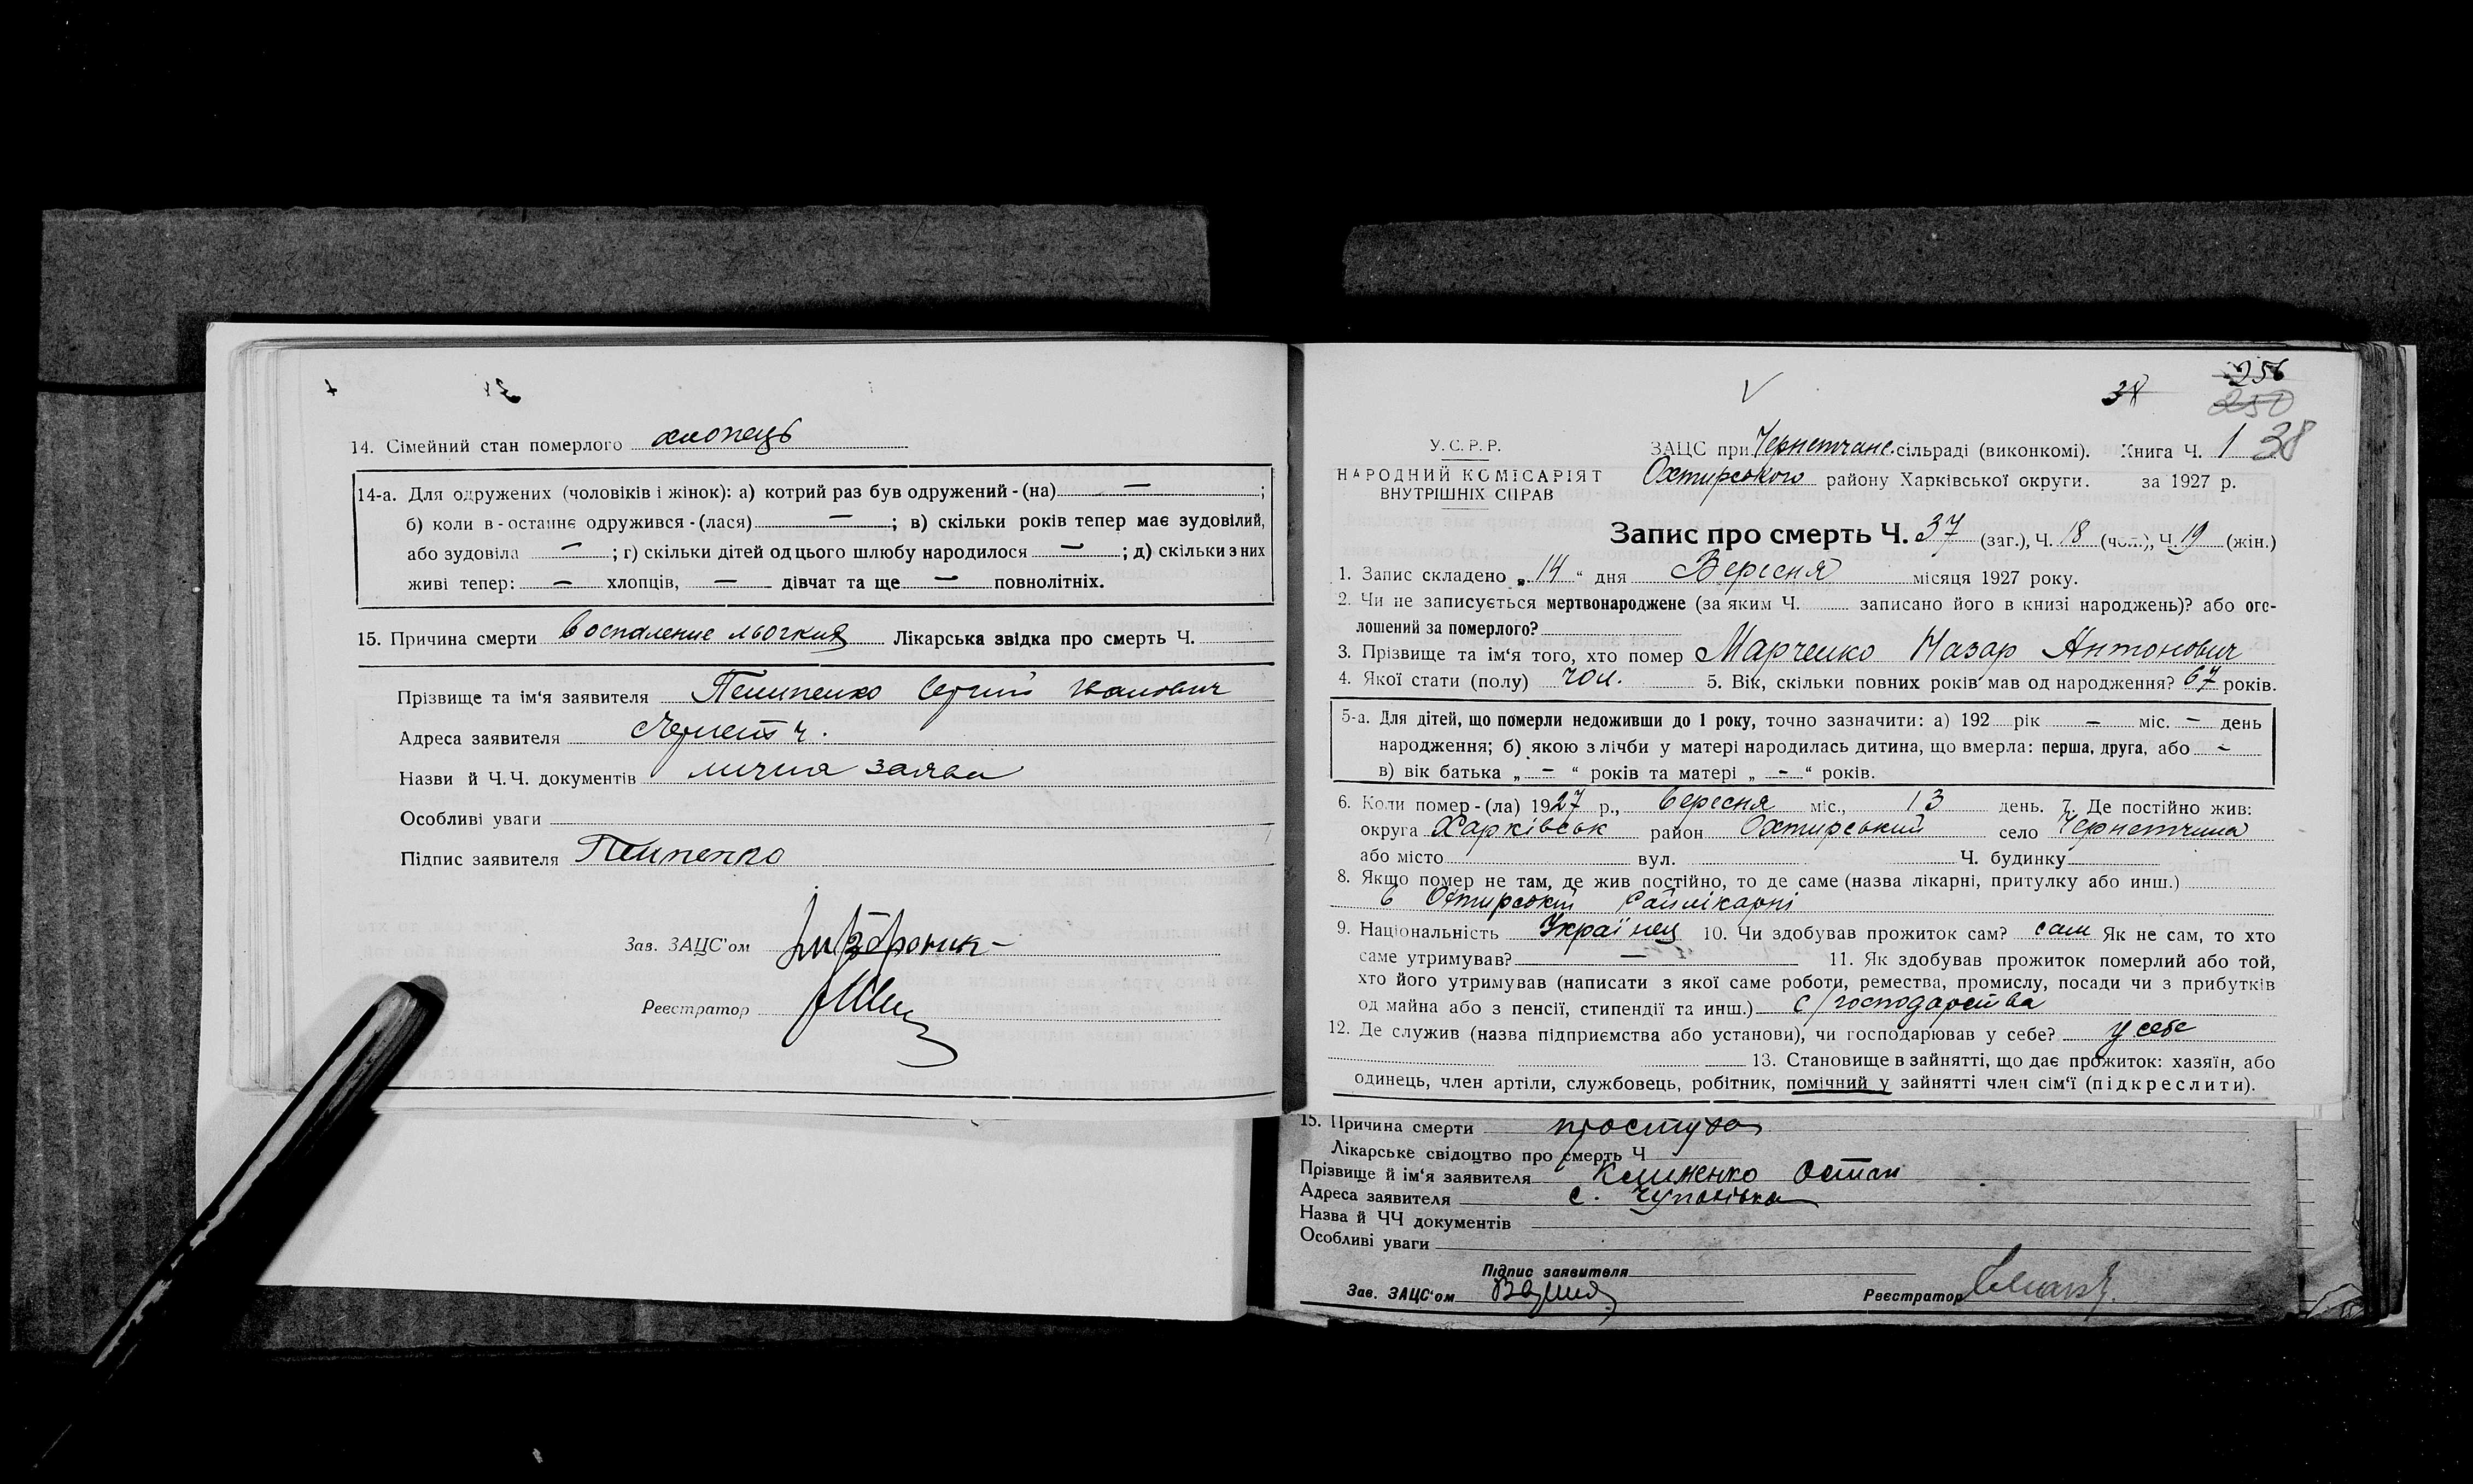 14. Сімейний стан померлого хлопець
14-а. Для одружених (чоловіків і жінок): а) котрий раз був одружений - (на) — ;
б) коли в - останнє одружився - (лася) — ; в) скільки років тепер має зудовілий,
або зудовіла — ; г) скільки дітей од цього шлюбу народилося — ; д) скільки з них
живі тепер: — хлопців, — дівчат та ще — повнолітніх.
15. Причина смерти воспаление льогких Лікарська звідка про смерть Ч.
Прізвище та ім'я заявителя Пилипенко Сергій Иванович
Адреса заявителя Чернетч.
Назви й Ч.Ч. документів лична заява
Особливі уваги
Підпис заявителя Пилипенко
Зав. ЗАЦС'ом
Реєстратор
256
38 250
У.С.Р.Р. ЗАЦС при Чернетчане. сільраді (виконкомі). Книга Ч. 1 38
НАРОДНИЙ КОМІСАРІЯТ Охтирського району Харківської округи. за 1927 р.
ВНУТРІШНІХ СПРАВ
Запис про смерть Ч. 37 (заг.), Ч. 18 (чол.), Ч. 19 (жін.)
1. Запис складено „14“ дня Вересня місяця 1927 року.
2. Чи не записується мертвонароджене (за яким Ч. записано його в книзі народжень)? або ого-
лошений за померлого?
3. Прізвище та ім'я того, хто помер Марченко Назар Антонович
4. Якої стати (полу) чол. 5. Вік, скільки повних років мав од народження? 67 років.
5-а. Для дітей, що померли недоживши до 1 року, точно зазначити: а) 192 рік — міс. — день
народження; б) якою з лічби у матері народилась дитина, що вмерла: перша, друга, або —
в) вік батька „ — “ років та матері „ — “ років.
6. Коли помер - (ла) 1927 р., Вересня міс., 13 день. 7. Де постійно жив:
округа Харківськ район Охтирський село Чернетчина
або місто вул. Ч. будинку
8. Якщо помер не там, де жив постійно, то де саме (назва лікарні, притулку або инш.)
в Охтирській Райлікарні
9. Національність Українец 10. Чи здобував прожиток сам? сам Як не сам, то хто
саме утримував? — 11. Як здобував прожиток померлий або той,
хто його утримував (написати з якої саме роботи, ремества, промислу, посади чи з прибутків
од майна або з пенсії, стипендії та инш.) с/господарства
12. Де служив (назва підприємства або установи), чи господарював у себе? у себе
13. Становище в зайнятті, що дає прожиток: хазяїн, або
одинець, член артіли, службовець, робітник, помічний у зайнятті член сім'ї (підкреслити).
15. Причина смерти простуда
Лікарське свідоцтво про смерть Ч
Прізвище й ім'я заявителя Клименко Остап
Адреса заявителя с. Чупахівка
Назва й ЧЧ документів
Особливі уваги
Підпис заявителя
Зав. ЗАЦС'ом Реєстратор